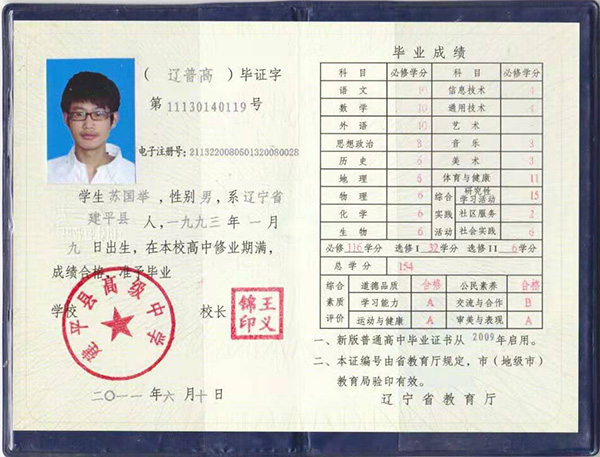 （辽普高）毕证字
第11130140119号
电子注册号：2113220080501320080028
学生苏国举，性别男，系辽宁省
建平县人，一九九三年一月
九日出生，在本校高中修业期满，
成绩合格，准予毕业
学校
校长
建平县高级中学
王义锦印
二〇一一年六月十日
毕业成绩
科目 必修学分 科目 必修学分
语文 10 信息技术 4
数学 10 通用技术 4
外语 10 艺术
思想政治 8 音乐 3
历史 6 美术 3
地理 6 体育与健康 11
物理 6 综合实践活动 研究性学习活动 15
化学 6 社区服务 2
生物 6 社会实践 6
必修116学分 选修I 32学分 选修II 6学分
总学分 154
综合素质评价 道德品质 合格 公民素养 合格
学习能力 A 交流与合作 B
运动与健康 A 审美与表现 A
一、新版普通高中毕业证书从2009年启用。
二、本证编号由省教育厅规定，市（地级市）
教育局验印有效。
辽宁省教育厅